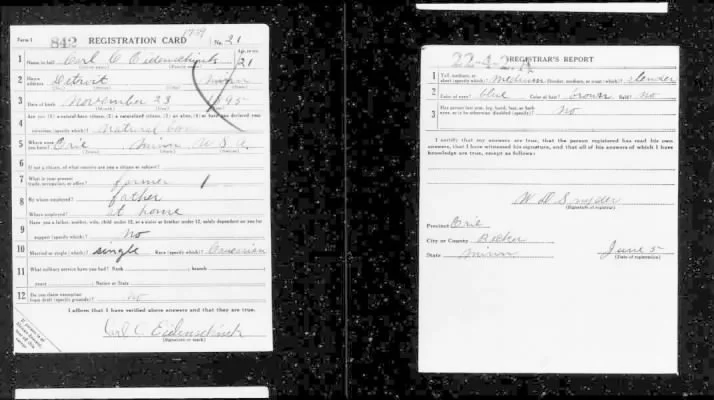 Form 1 842 REGISTRATION CARD 1779 No. 21
1 Name in full Carl C Eidenschink Age, in yrs. 21
(Given name) (Family name)
2 Home address Detroit Minn
(No.) (Street) (City) (State)
3 Date of birth November 23 1895
(Month) (Day) (Year)
4 Are you (1) a natural-born citizen, (2) a naturalized citizen, (3) an alien, (4) or have you declared your
intention (specify which)? Natural born
5 Where were you born? Erie Minn U S A
(Town) (State) (Nation)
6 If not a citizen, of what country are you a citizen or subject?
7 What is your present trade, occupation, or office? farmer 1
8 By whom employed? father
Where employed? at home
9 Have you a father, mother, wife, child under 12, or a sister or brother under 12, solely dependent on you for
support (specify which)? No
10 Married or single (which)? single Race (specify which)? Caucasian
11 What military service have you had? Rank ; branch
years ; Nation or State
12 Do you claim exemption from draft (specify grounds)? no
I affirm that I have verified above answers and that they are true.
Carl C. Eidenschink
(Signature or mark)
22-4-2-A REGISTRAR'S REPORT
1 Tall, medium, or short (specify which)? medium Slender, medium, or stout (which)? slender
2 Color of eyes? blue Color of hair? brown Bald? No
3 Has person lost arm, leg, hand, foot, or both eyes, or is he otherwise disabled (specify)? No
I certify that my answers are true, that the person registered has read his own
answers, that I have witnessed his signature, and that all of his answers of which I have
knowledge are true, except as follows:
W D Snyder
(Signature of registrar)
Precinct Erie
City or County Becker
State Minn June 5
(Date of registration)